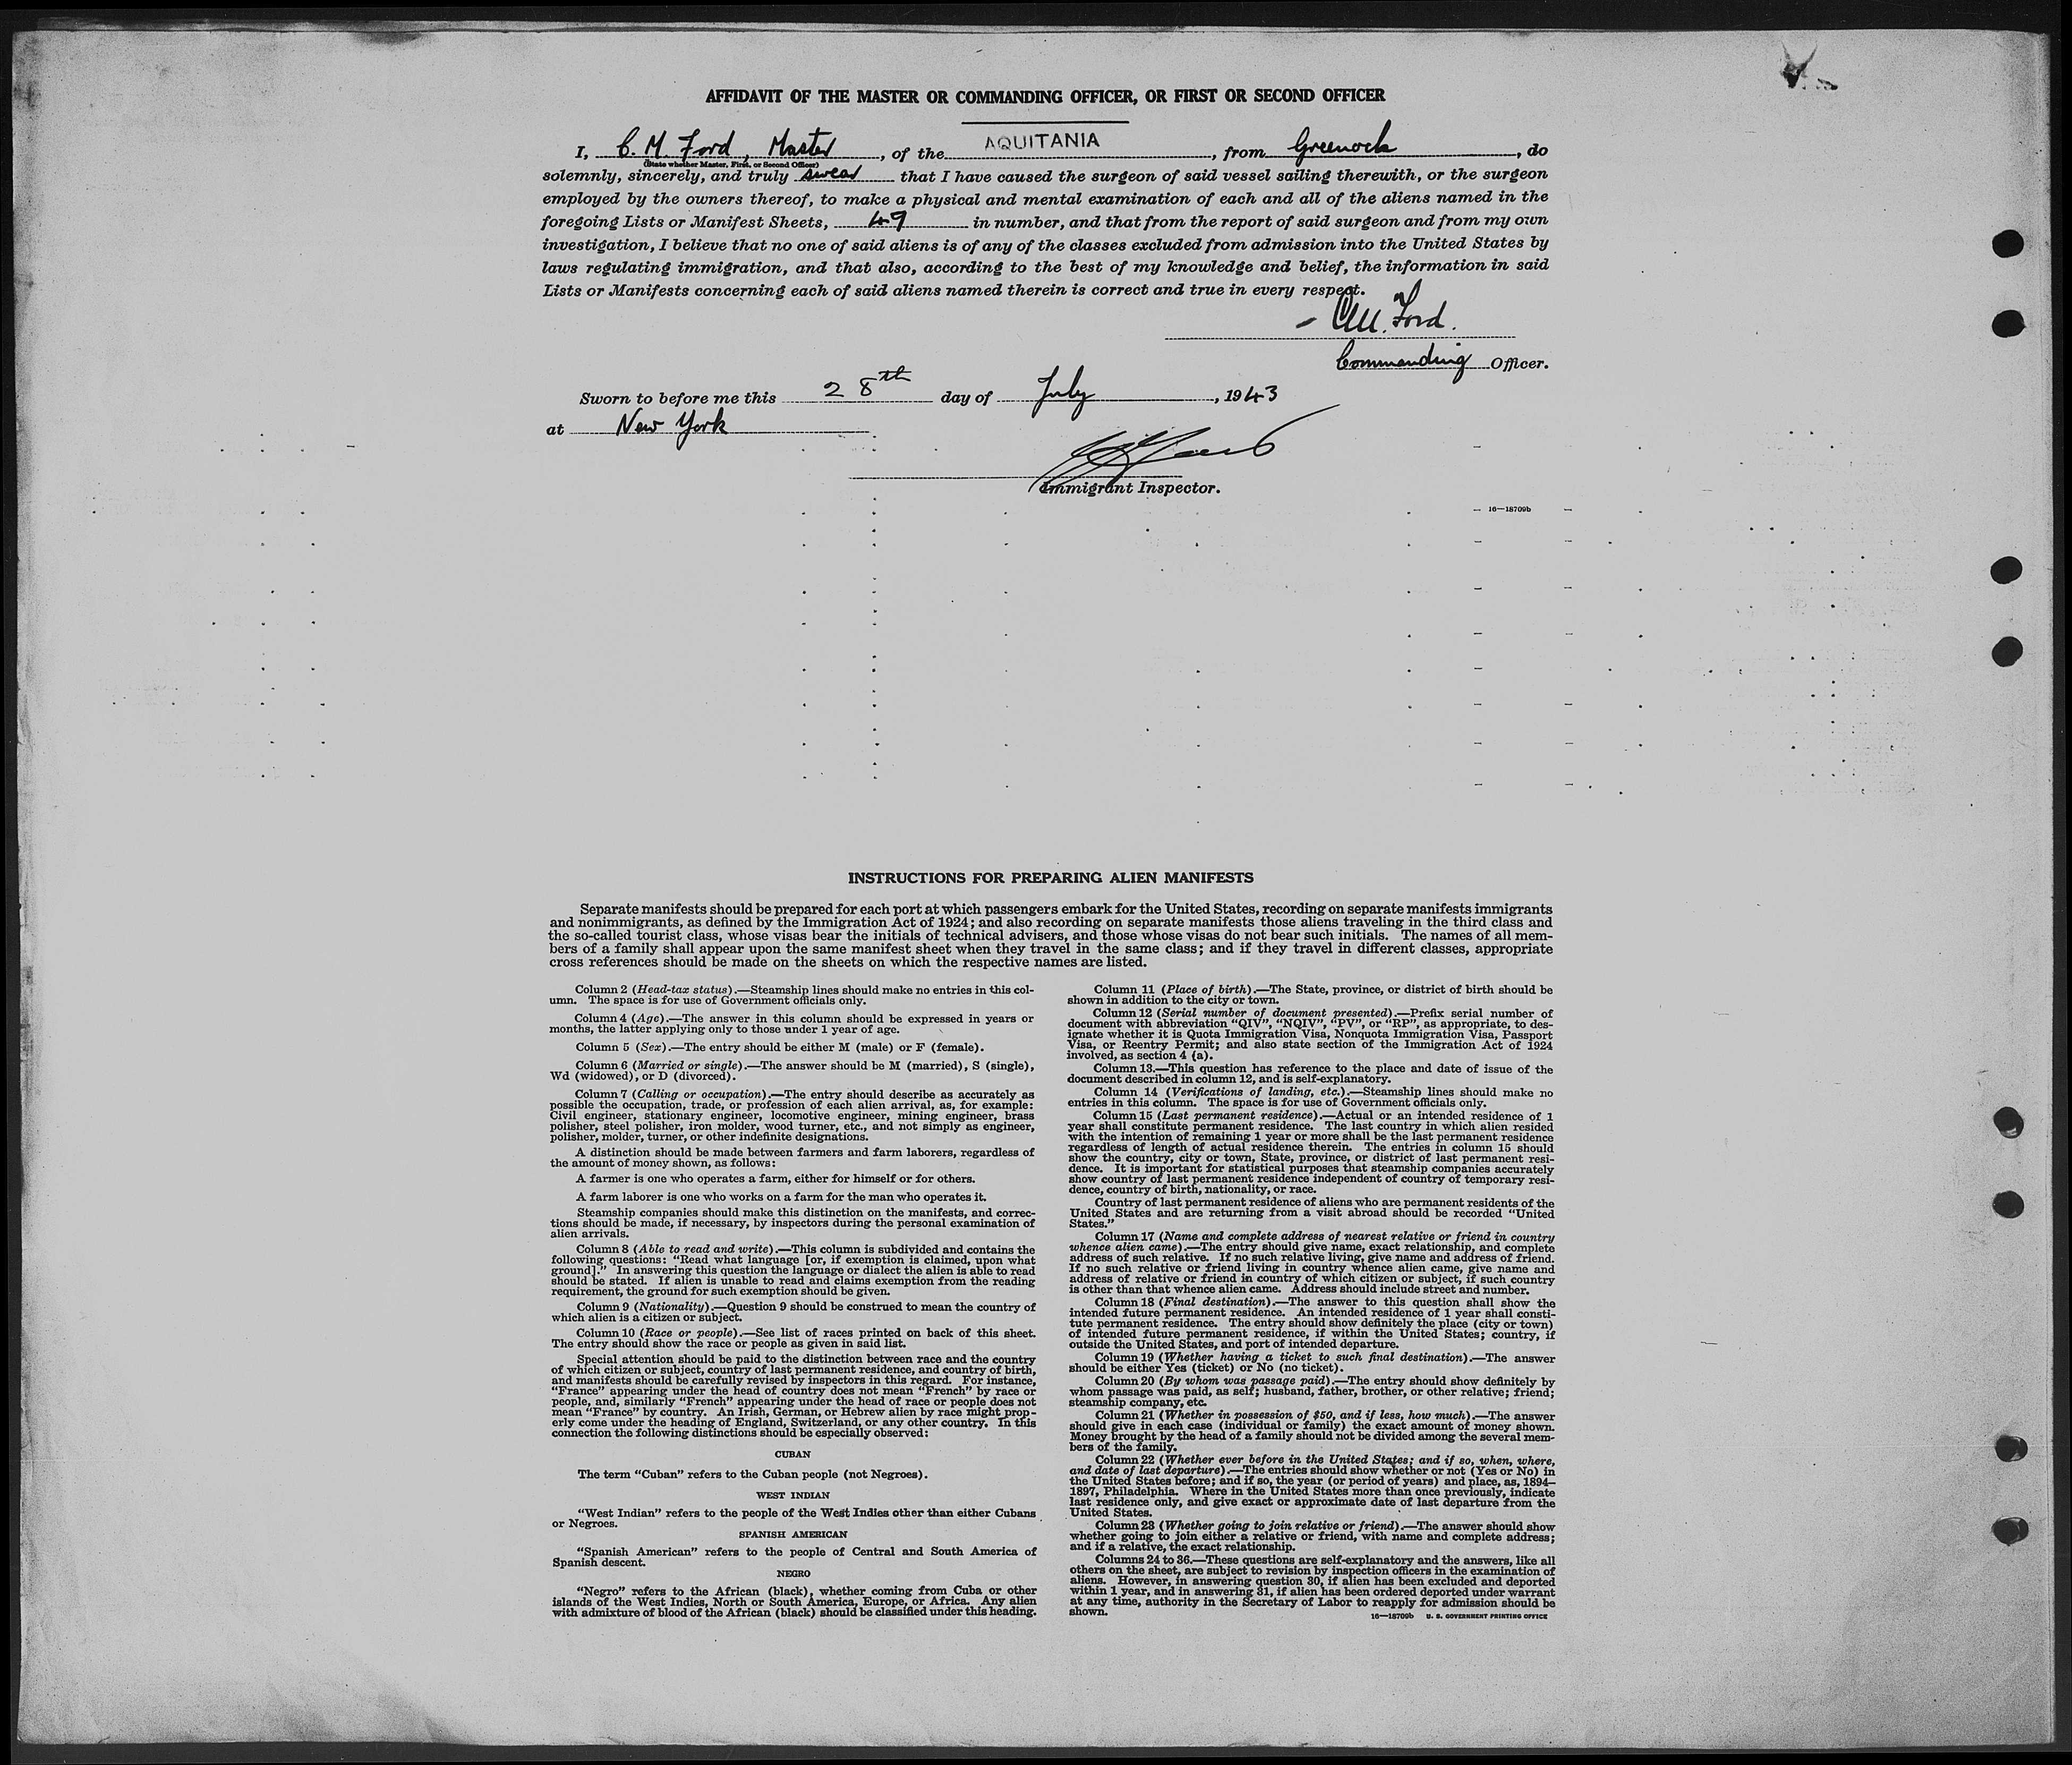 AFFIDAVIT OF THE MASTER OR COMMANDING OFFICER, OR FIRST OR SECOND OFFICER
I, C. M. Ford, Master, of the AQUITANIA, from Greenock, do
(State whether Master, First, or Second Officer)
solemnly, sincerely, and truly swear that I have caused the surgeon of said vessel sailing therewith, or the surgeon
employed by the owners thereof, to make a physical and mental examination of each and all of the aliens named in the
foregoing Lists or Manifest Sheets, 49 in number, and that from the report of said surgeon and from my own
investigation, I believe that no one of said aliens is of any of the classes excluded from admission into the United States by
laws regulating immigration, and that also, according to the best of my knowledge and belief, the information in said
Lists or Manifests concerning each of said aliens named therein is correct and true in every respect.
C.M. Ford.
Commanding Officer.
Sworn to before me this 28th day of July, 1943
at New York
Immigrant Inspector.
16—18709b
INSTRUCTIONS FOR PREPARING ALIEN MANIFESTS
Separate manifests should be prepared for each port at which passengers embark for the United States, recording on separate manifests immigrants
and nonimmigrants, as defined by the Immigration Act of 1924; and also recording on separate manifests those aliens traveling in the third class and
the so-called tourist class, whose visas bear the initials of technical advisers, and those whose visas do not bear such initials. The names of all mem-
bers of a family shall appear upon the same manifest sheet when they travel in the same class; and if they travel in different classes, appropriate
cross references should be made on the sheets on which the respective names are listed.
Column 2 (Head-tax status).—Steamship lines should make no entries in this col-
umn. The space is for use of Government officials only.
Column 4 (Age).—The answer in this column should be expressed in years or
months, the latter applying only to those under 1 year of age.
Column 5 (Sex).—The entry should be either M (male) or F (female).
Column 6 (Married or single).—The answer should be M (married), S (single),
Wd (widowed), or D (divorced).
Column 7 (Calling or occupation).—The entry should describe as accurately as
possible the occupation, trade, or profession of each alien arrival, as, for example:
Civil engineer, stationary engineer, locomotive engineer, mining engineer, brass
polisher, steel polisher, iron molder, wood turner, etc., and not simply as engineer,
polisher, molder, turner, or other indefinite designations.
A distinction should be made between farmers and farm laborers, regardless of
the amount of money shown, as follows:
A farmer is one who operates a farm, either for himself or for others.
A farm laborer is one who works on a farm for the man who operates it.
Steamship companies should make this distinction on the manifests, and correc-
tions should be made, if necessary, by inspectors during the personal examination of
alien arrivals.
Column 8 (Able to read and write).—This column is subdivided and contains the
following questions: "Read what language [or, if exemption is claimed, upon what
ground]." In answering this question the language or dialect the alien is able to read
should be stated. If alien is unable to read and claims exemption from the reading
requirement, the ground for such exemption should be given.
Column 9 (Nationality).—Question 9 should be construed to mean the country of
which alien is a citizen or subject.
Column 10 (Race or people).—See list of races printed on back of this sheet.
The entry should show the race or people as given in said list.
Special attention should be paid to the distinction between race and the country
of which citizen or subject, country of last permanent residence, and country of birth,
and manifests should be carefully revised by inspectors in this regard. For instance,
"France" appearing under the head of country does not mean "French" by race or
people, and, similarly "French" appearing under the head of race or people does not
mean "France" by country. An Irish, German, or Hebrew alien by race might prop-
erly come under the heading of England, Switzerland, or any other country. In this
connection the following distinctions should be especially observed:
CUBAN
The term "Cuban" refers to the Cuban people (not Negroes).
WEST INDIAN
"West Indian" refers to the people of the West Indies other than either Cubans
or Negroes.
SPANISH AMERICAN
"Spanish American" refers to the people of Central and South America of
Spanish descent.
NEGRO
"Negro" refers to the African (black), whether coming from Cuba or other
islands of the West Indies, North or South America, Europe, or Africa. Any alien
with admixture of blood of the African (black) should be classified under this heading.
Column 11 (Place of birth).—The State, province, or district of birth should be
shown in addition to the city or town.
Column 12 (Serial number of document presented).—Prefix serial number of
document with abbreviation "QIV", "NQIV", "PV", or "RP", as appropriate, to des-
ignate whether it is Quota Immigration Visa, Nonquota Immigration Visa, Passport
Visa, or Reentry Permit; and also state section of the Immigration Act of 1924
involved, as section 4 (a).
Column 13.—This question has reference to the place and date of issue of the
document described in column 12, and is self-explanatory.
Column 14 (Verifications of landing, etc.).—Steamship lines should make no
entries in this column. The space is for use of Government officials only.
Column 15 (Last permanent residence).—Actual or an intended residence of 1
year shall constitute permanent residence. The last country in which alien resided
with the intention of remaining 1 year or more shall be the last permanent residence
regardless of length of actual residence therein. The entries in column 15 should
show the country, city or town, State, province, or district of last permanent resi-
dence. It is important for statistical purposes that steamship companies accurately
show country of last permanent residence independent of country of temporary resi-
dence, country of birth, nationality, or race.
Country of last permanent residence of aliens who are permanent residents of the
United States and are returning from a visit abroad should be recorded "United
States."
Column 17 (Name and complete address of nearest relative or friend in country
whence alien came).—The entry should give name, exact relationship, and complete
address of such relative. If no such relative living, give name and address of friend.
If no such relative or friend living in country whence alien came, give name and
address of relative or friend in country of which citizen or subject, if such country
is other than that whence alien came. Address should include street and number.
Column 18 (Final destination).—The answer to this question shall show the
intended future permanent residence. An intended residence of 1 year shall consti-
tute permanent residence. The entry should show definitely the place (city or town)
of intended future permanent residence, if within the United States; country, if
outside the United States, and port of intended departure.
Column 19 (Whether having a ticket to such final destination).—The answer
should be either Yes (ticket) or No (no ticket).
Column 20 (By whom was passage paid).—The entry should show definitely by
whom passage was paid, as self; husband, father, brother, or other relative; friend;
steamship company, etc.
Column 21 (Whether in possession of $50, and if less, how much).—The answer
should give in each case (individual or family) the exact amount of money shown.
Money brought by the head of a family should not be divided among the several mem-
bers of the family.
Column 22 (Whether ever before in the United States; and if so, when, where,
and date of last departure).—The entries should show whether or not (Yes or No) in
the United States before; and if so, the year (or period of years) and place, as, 1894–
1897, Philadelphia. Where in the United States more than once previously, indicate
last residence only, and give exact or approximate date of last departure from the
United States.
Column 23 (Whether going to join relative or friend).—The answer should show
whether going to join either a relative or friend, with name and complete address;
and if a relative, the exact relationship.
Columns 24 to 36.—These questions are self-explanatory and the answers, like all
others on the sheet, are subject to revision by inspection officers in the examination of
aliens. However, in answering question 30, if alien has been excluded and deported
within 1 year, and in answering 31, if alien has been ordered deported under warrant
at any time, authority in the Secretary of Labor to reapply for admission should be
shown.
16—18709b U. S. GOVERNMENT PRINTING OFFICE